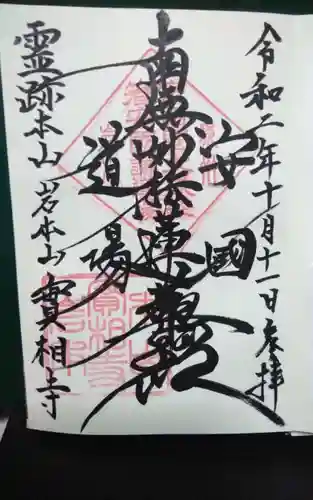 令和二年十月十一日来拝
安國
南無妙法蓮華経
道場
霊跡本山岩本山實相寺